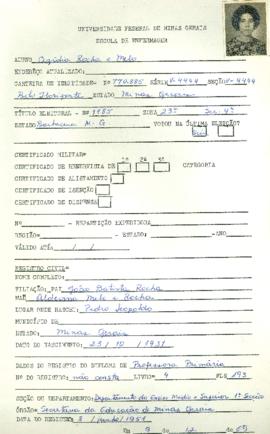 UNIVERSIDADE FEDERAL DE MINAS GERAIS
ESCOLA DE ENFERMAGEM
ALUNO Rocha e Melo
ENDEREÇO ATUALIZADO:
CARTEIRA DE IDENTIDADE- Nº 770.885 SÉRIE V-4404 SEÇÃO V-4404
Belo Horizonte ESTADO Minas Gerais
TÍTULO ELEITORAL - Nº 1985 ZONA 23ª
ESTADO Barbacena M. G VOTOU NA ÚLTIMA ELEIÇÃO?
Sim
CERTIFICADO MILITAR-
CERTIFICADO DE RESERVISTA DE 1a 2a 3a CATEGORIA
CERTIFICADO DE ALISTAMENTO
CERTIFICADO DE ISENÇÃO
CERTIFICADO DE DISPENSA
Nº - REPARTIÇÃO EXPEDIDORA
REGIÃO= - ESTADO: -ANO
VÁLIDO ATÉ / /
REGISTRO CIVIL=
NOME COMPLETO:
FILIAÇÃO: PAI João Batista Rocha
MÃE Melo e Rocha
LUGAR ONDE NASCEU: Pedro Leopoldo
MUNICÍPIO DE
ESTADO: Minas Gerais
DATA DO NASCIMENTO: 23 / 10 / 1931
DADOS DO REGISTRO DO DIPLOMA DE Professora Primária
Nº DO REGISTRO: não consta LIVRO: 4 FLS 193
SEÇÃO OU DEPARTAMENTO: Departamento do Ensino Médio e Superior 1ª Secção
ÓRGÃO: Secretaria da Educação de Minas Gerais
DATA DO REGISTRO 3 / junho / 1951
Em 9 12 69